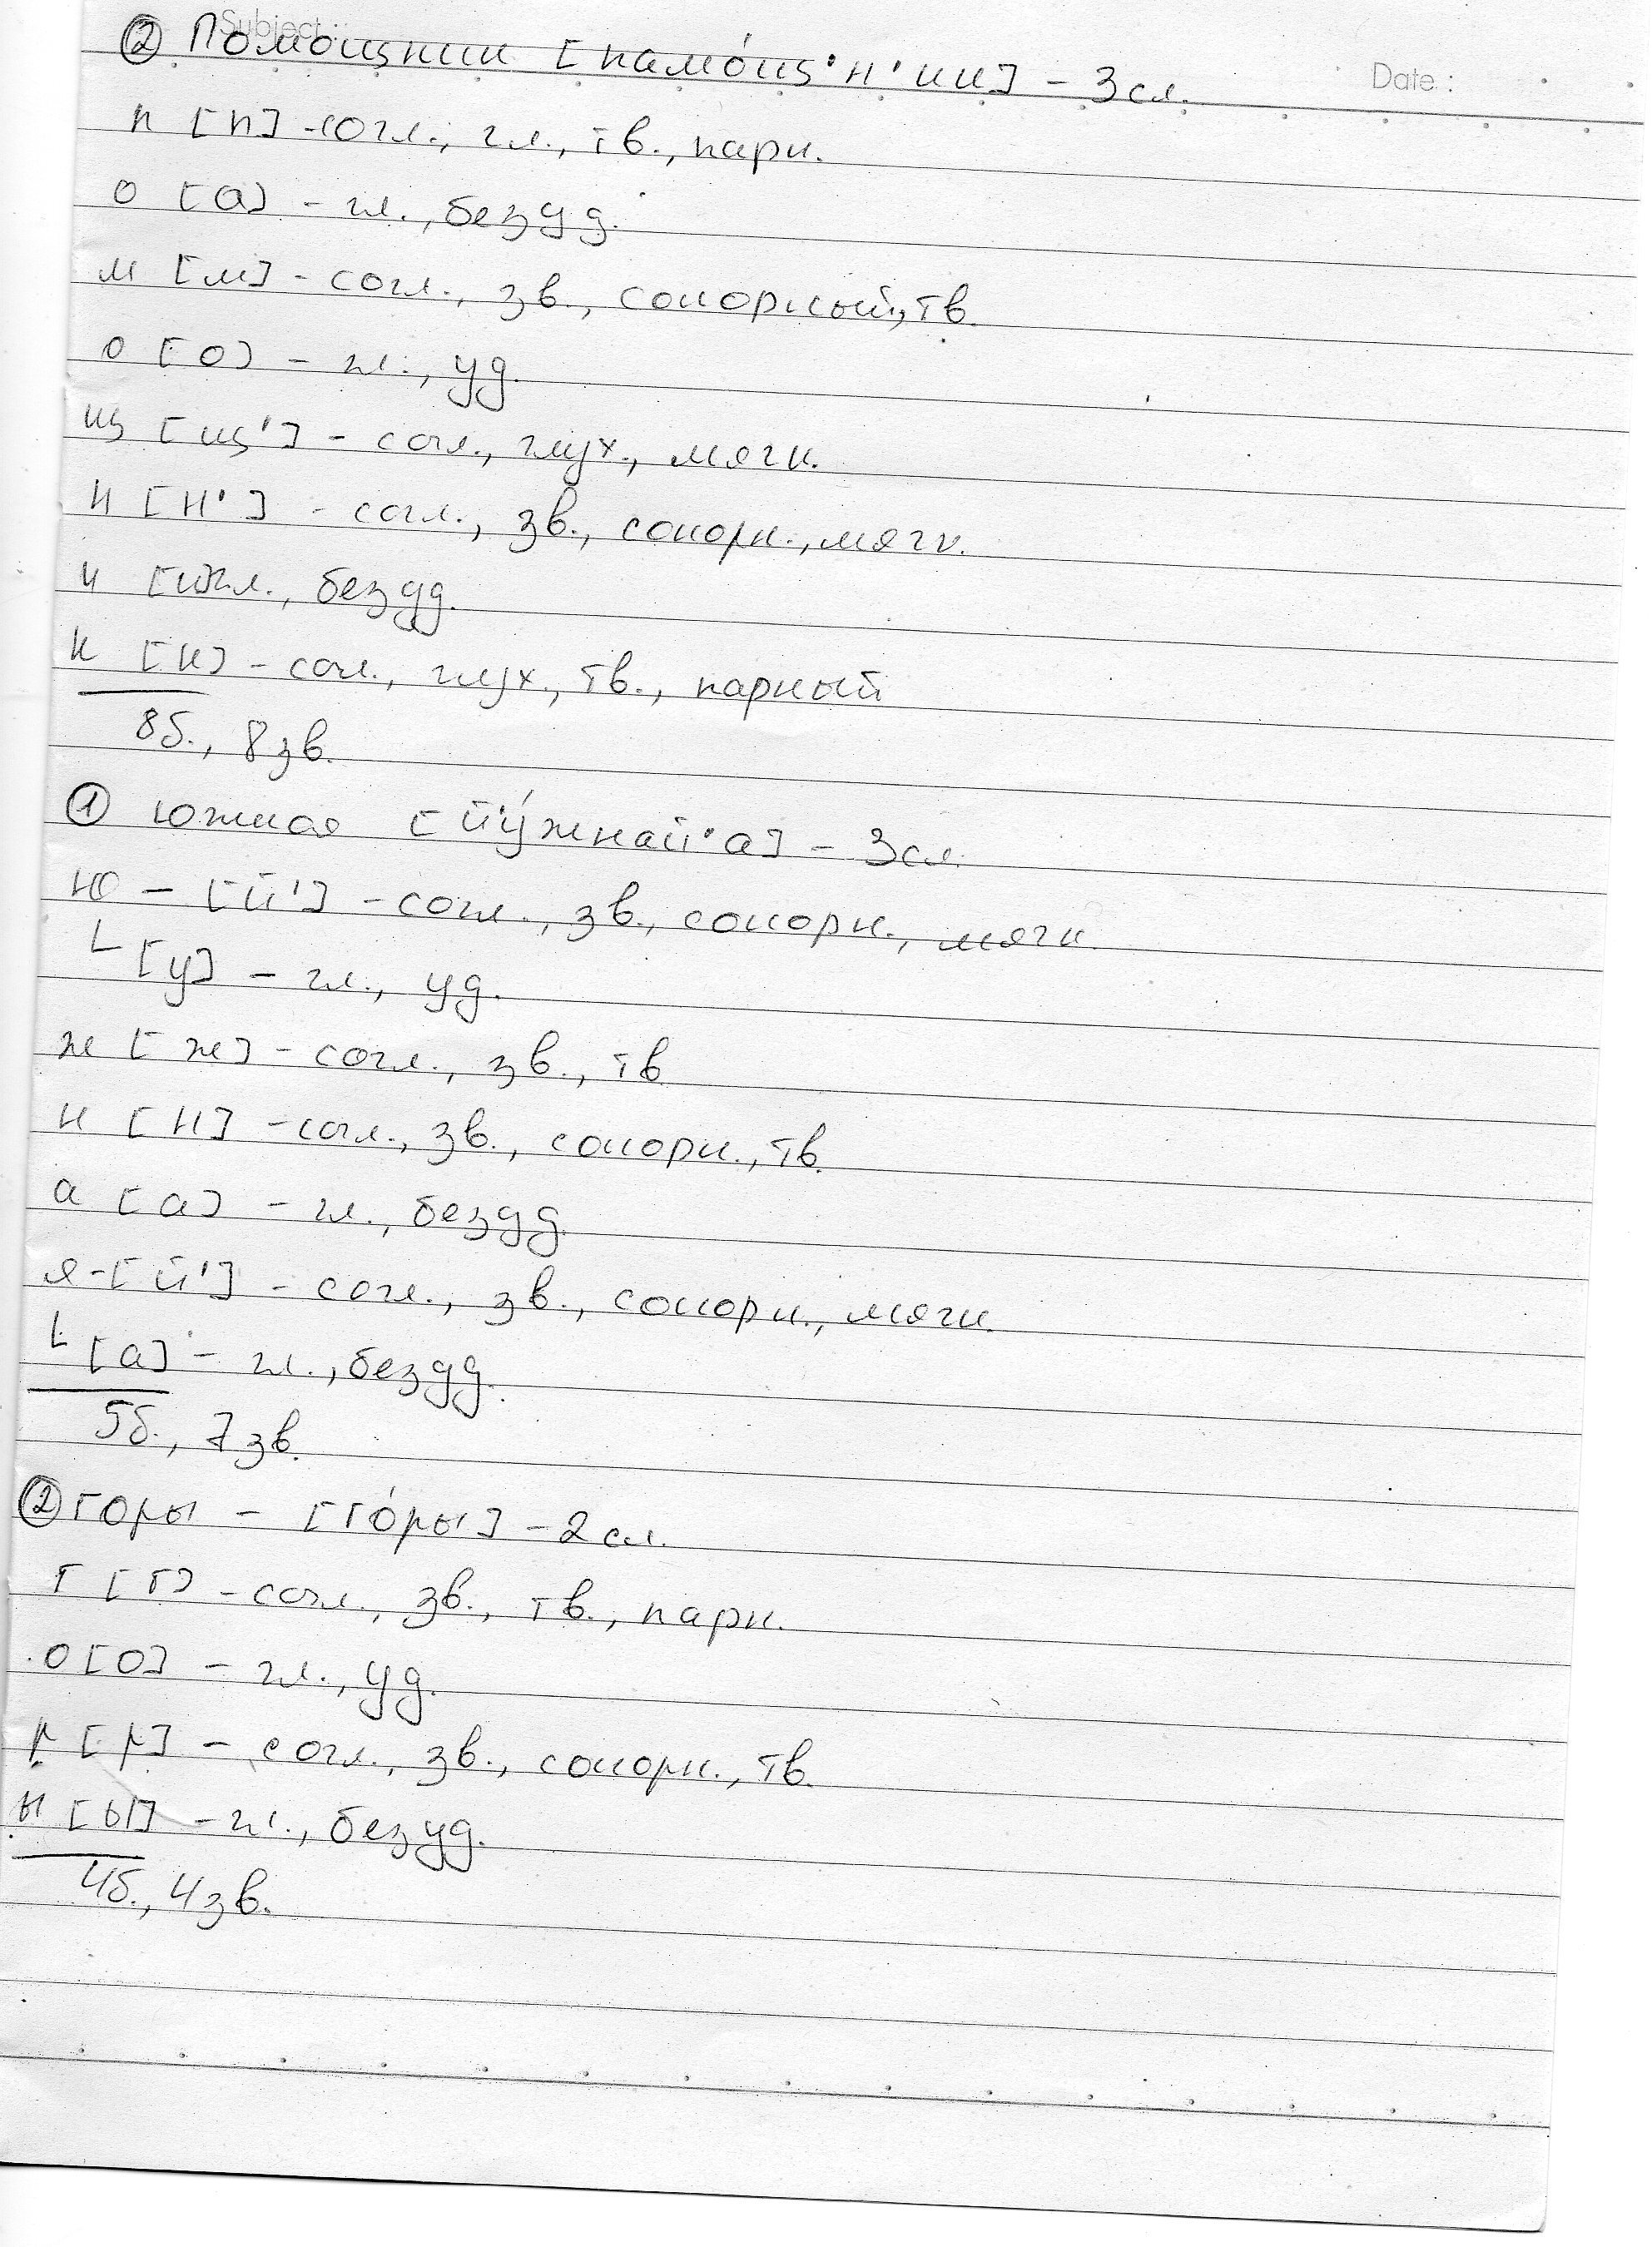 Subject :
Date :
② Помощник [памо́щ'н'ик] - 3 сл.
п [п] - согл., гл., тв., парн.
о [а] - гл., безуд.
м [м] - согл., зв., сонорный, тв.
о [о] - гл., уд.
щ [щ'] - согл., глух., мягк.
н [н'] - согл., зв., сонорн., мягк.
и [и] гл., безуд.
к [к] - согл., глух., тв., парный
8б., 8 зв.
① южная [й'у́жнай'а] - 3 сл.
ю - [й'] - согл., зв., сонорн., мягк.
[у] - гл., уд.
ж [ж] - согл., зв., тв
н [н] - согл., зв., сонорн., тв.
а [а] - гл., безуд.
я - [й'] - согл., зв., сонорн., мягк.
[а] - гл., безуд.
5б., 7 зв.
② горы - [го́ры] - 2 сл.
г [г] - согл., зв., тв., парн.
о [о] - гл., уд.
р [р] - согл., зв., сонорн., тв.
ы [ы] - гл., безуд.
4б., 4 зв.